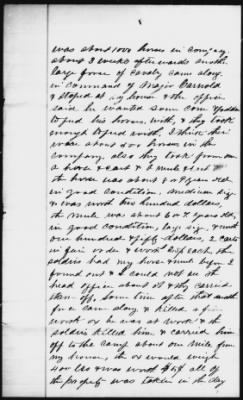 was about 1000 horses in company.
about 3 weeks afterwards another
large force of cavalry came along
in command of Major
& stoped at my house & the officer
said he wanted some corn & fodder
to feed his horses, with, & they took
enough to feed with. I think their
ware about 500 horses in the
company. also they took from me
a horse & cart & 1 mule &
the horse was about 8 years old
in good condition, medium size
& was worth two hundred dollars,
the mule was about 6 or 7 years old,
in good condition, large size, & worth
one hundred & fifty dollars, 2 carts
in fair order & worth each, the
soldiers had my horse & mule before I
found out & I could not see the
head officer about it & they carried
them off, Some time after that another
force came along & killed a fine
work ox he was at work & the
soldiers killed him & carried him
off to the camp about one mile from
my house, the ox would weigh
400 lbs & was worth all of
the property was taken in the day